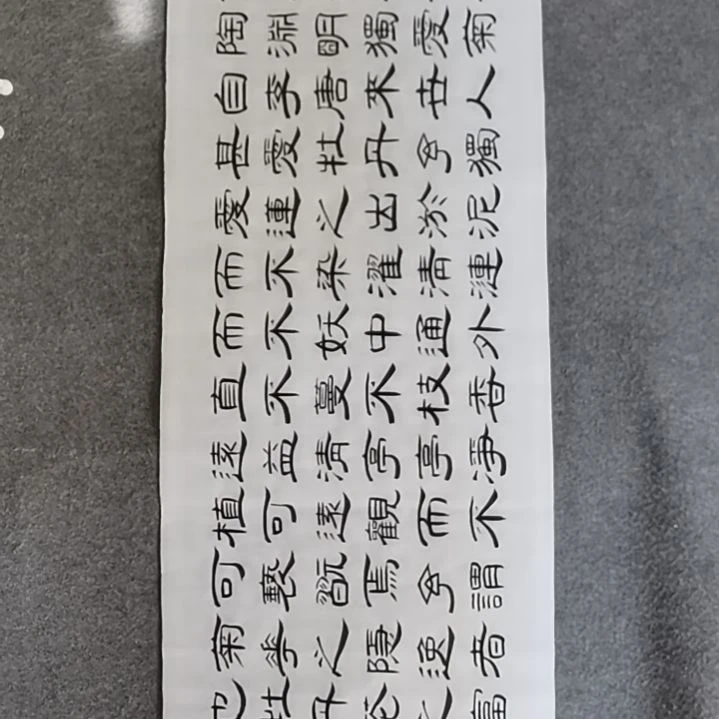 陶淵明獨愛菊
自李唐來世人
甚愛牡丹予獨
愛蓮之出淤泥
而不染濯清漣
而不妖中通外
直不蔓不枝香
遠益清亭亭淨
植可遠觀而不
可褻翫焉予謂
菊華之隱逸者
也牡丹花之富